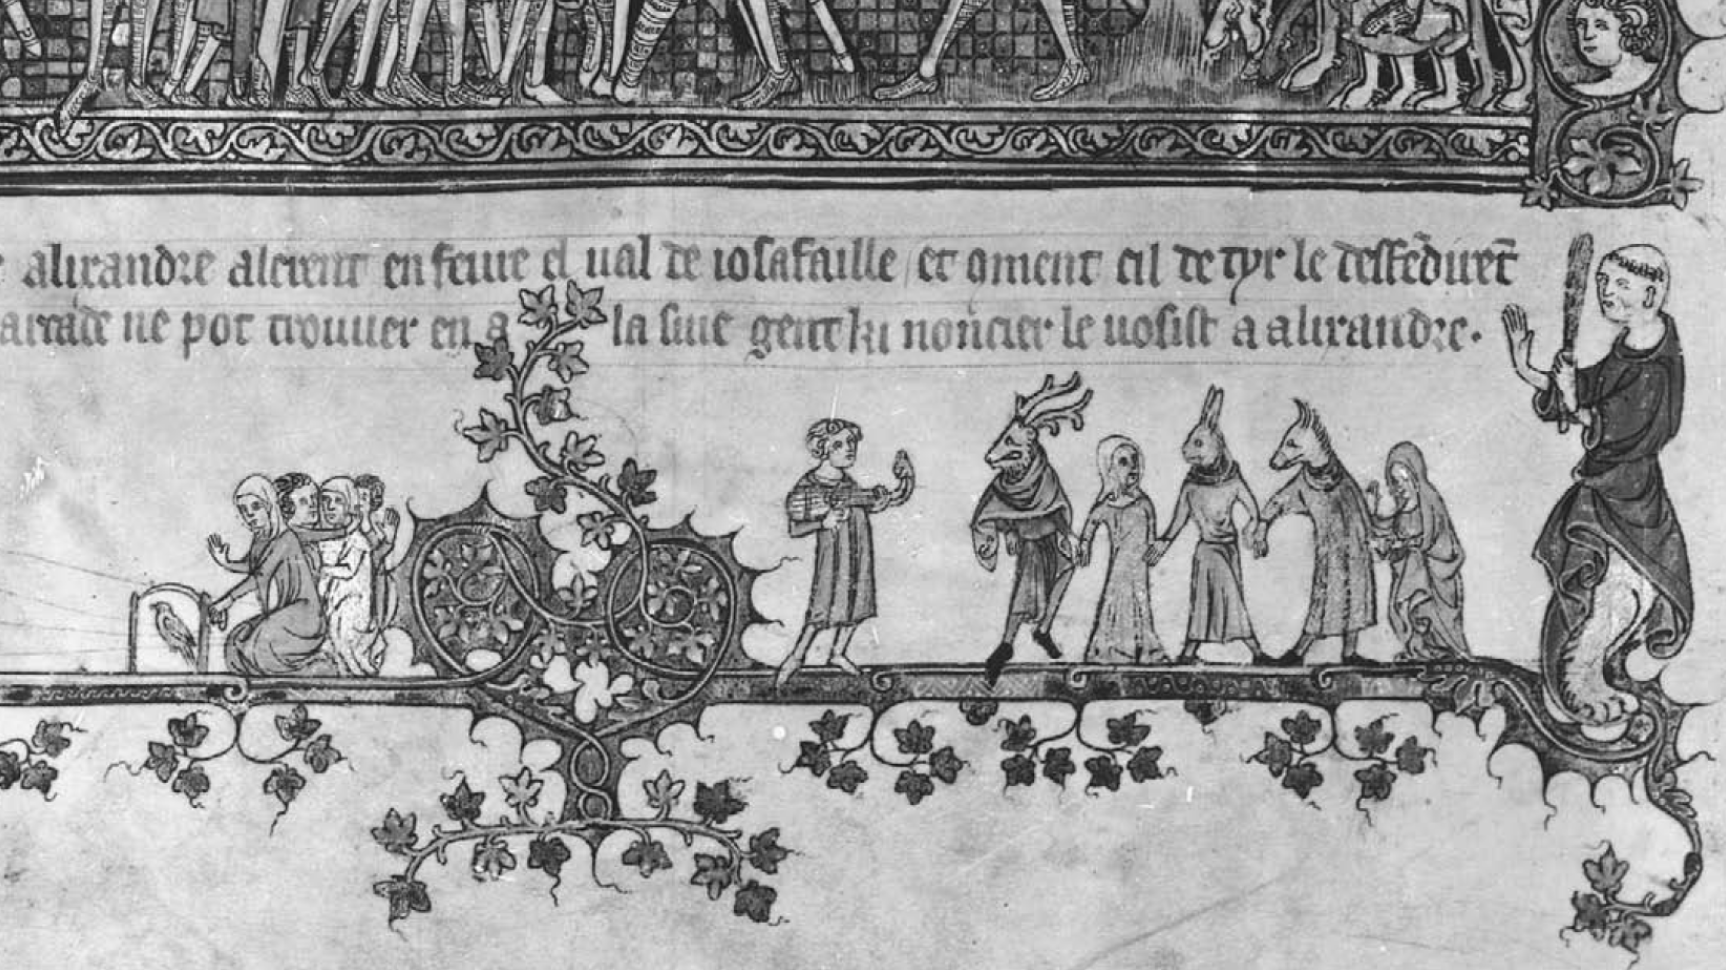 alixandre alerent en feurre el ual de iosafaille et 9ment cil de tyr le desfēdirēt
ne pot trouuer en la siue gent ki noncier le uosist a alixandre.